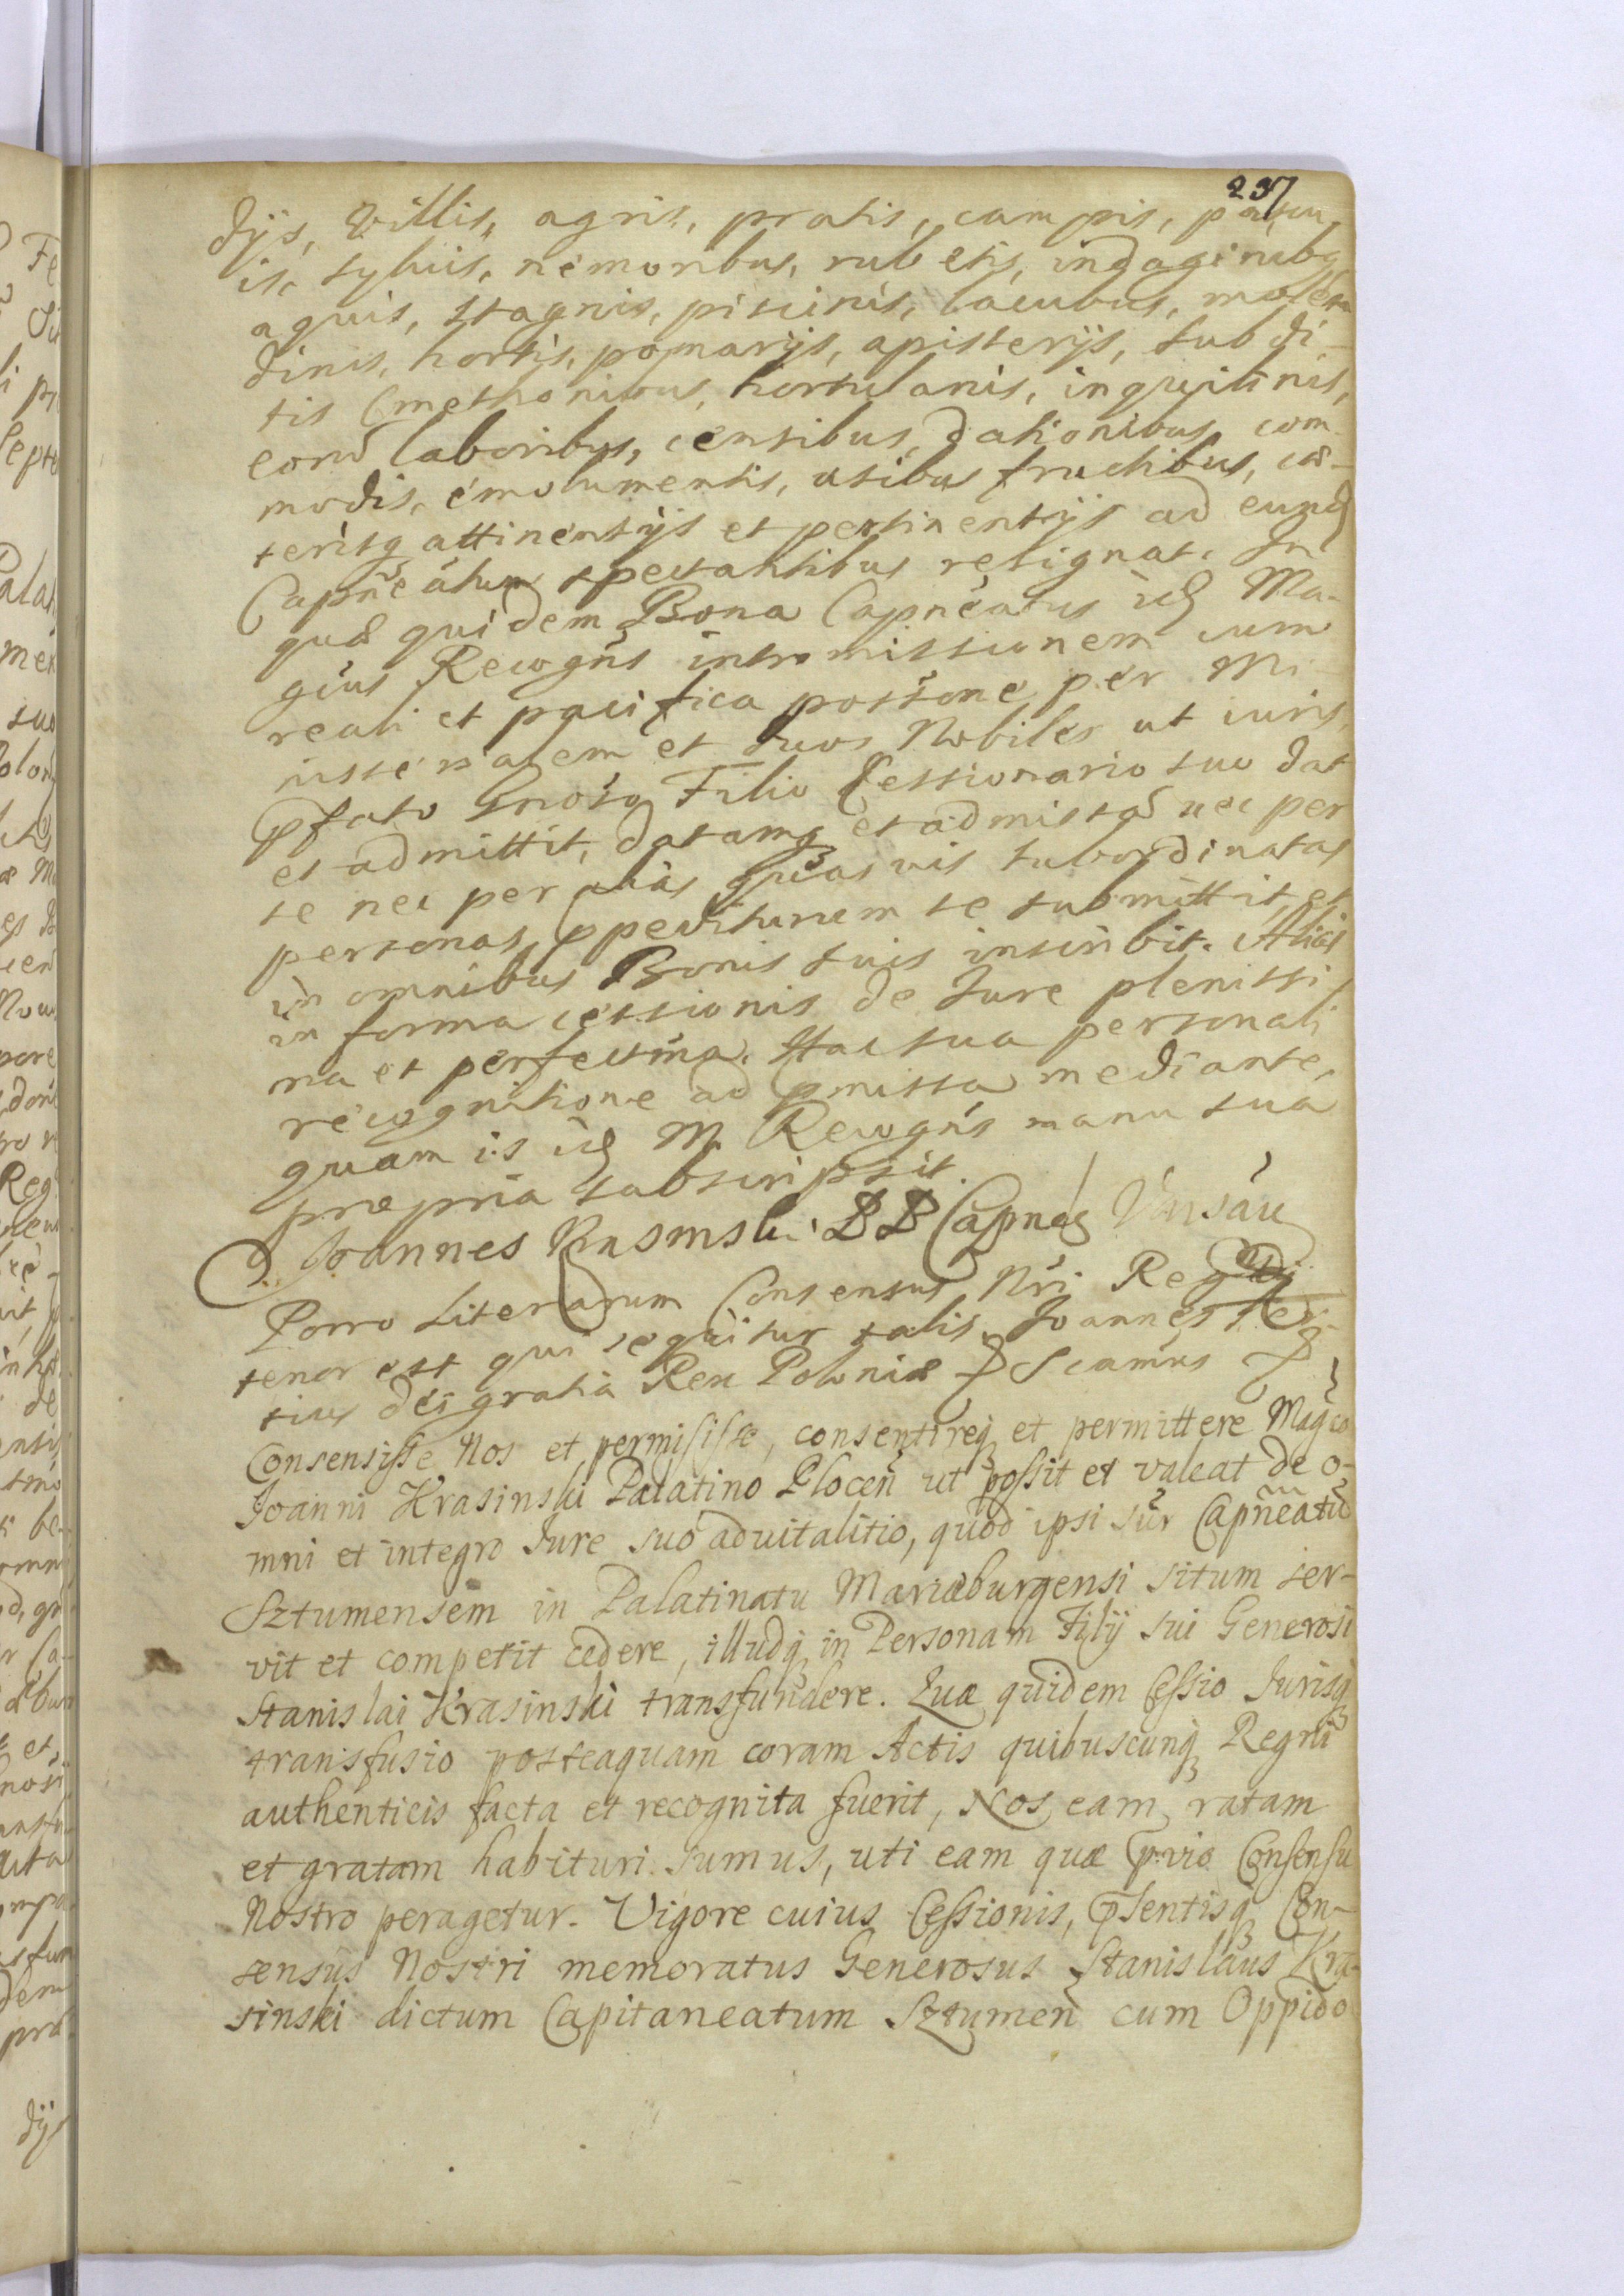 237
dijs, villis, agris, pratis, campis, pascu
is, sylvis, nemoribus, rubetis, indaginibq
aquis, stagnis, piscinis, lacubus, molen
dinis, hortis, pomarijs, apisterijs, subdi-
tis Cmethonibus, hortulanis, inquilinis,
eorū laboribus, censibus, dationibus, com
modis, emolumentis, usibus fructibus, cæ-
terisq attinentijs et pertinentijs ad eund
Capn̄eatum spectantibus resignat. In
quæ quidem Bona Capneatus id Ma-
gcus Recogn̄s intromissionem cum
reali et pacifica possone per Mi-
nisterialem et duos Nobiles ut iuris
pfato Gnoso Filio Cessionario suo dat
et admittit, datamq et admissā nec per
se nec per alias quasvis subordinatas
personas ppediturum se submittit, et
in omnibus Bonis suis inscribit. Alias
in forma cessionis de Jure plenissi
ma et perfectma. Hac sua personali
recognitione ad pmissa mediante,
quam is id M Recogn̄s manu sua
propria subscripsit.
Joannes Krasinski. Capneq Varsav
Porro Literarum Consensus Nri Reg
tenor est qui sequitur talis. Joannes Ter-
tius dei gratia Rex Poloniæ Scamus
Consensisse Nos et permisisse, consentireq et permittere Magco
Joanni Krasinski Palatino Plocen̄ ut possit et valeat de o-
mni et integro Jure suo advitalitio, quod ipsi sur Capn̄eatū
Sztumensem in Palatinatu Mariæburgensi situm ser-
vit et competit cedere, illudq in Personam Filij sui Generosi
Stanislai Krasinski transfundere. Quæ quidem Cessio Jurisq
transfusio posteaquam coram Actis quibuscunq Regni
authenticis facta et recognita fuerit, Nos eam ratam
et gratam habituri sumus, uti eam quæ prvio Consensu
Nostro peragetur. Vigore cuius Cessionis, pSentisq Con-
sensus Nostri memoratus Generosus Stanislaus Kra-
sinski dictum Capitaneatum Sztumen cum Oppido